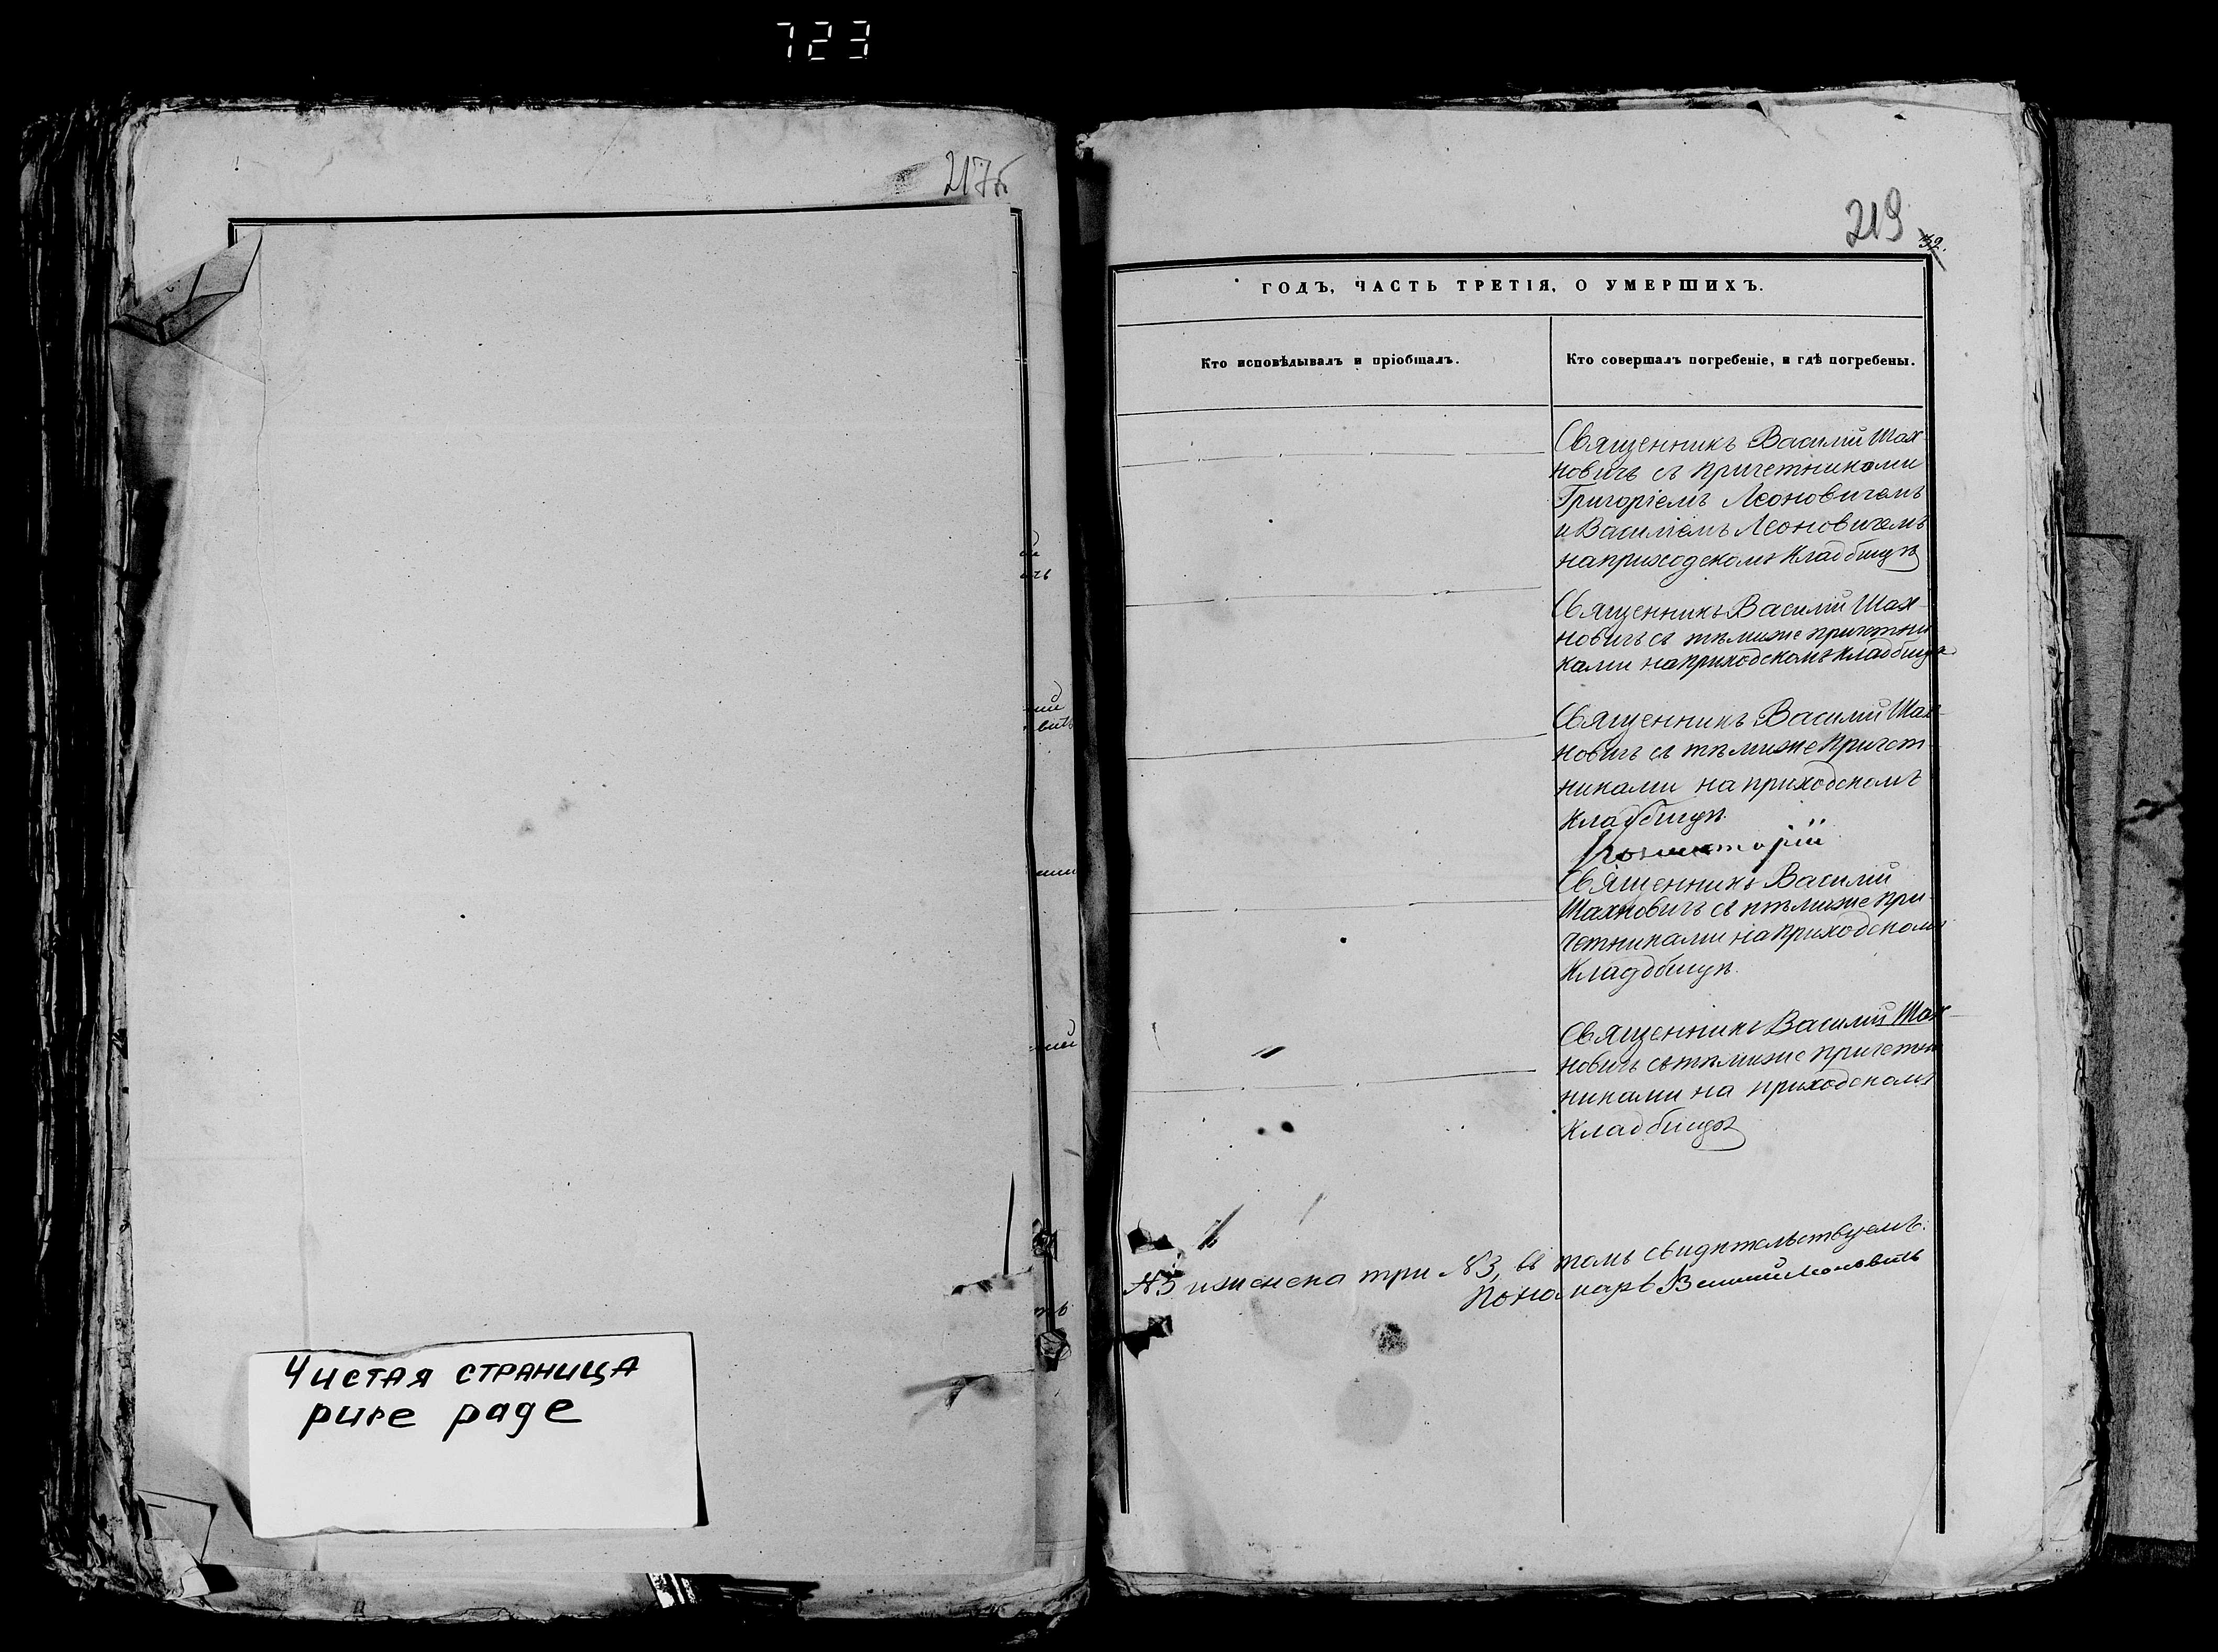 723
217б
Чистая страница
pure page
219
32.
ГОДЪ, ЧАСТЬ ТРЕТІЯ, О УМЕРШИХЪ.
Кто исповѣдывалъ и пріобщалъ.
Кто совершалъ погребеніе, и гдѣ погребены.
Священникъ Василій Шах-
новичъ съ причетниками
Григоріемъ Леоновичемъ
и Василіемъ Леоновичемъ
на приходскомъ кладбищѣ
Священникъ Василій Шах-
новичъ съ тѣмиже причетни
ками на приходскомъ кладбищѣ
Священникъ Василій Шах-
новичъ съ тѣмиже причет
никами на приходскомъ
кладбищѣ.
Священникъ Василій
Шахновичъ съ тѣмиже при-
четниками на приходскомъ
кладбищѣ.
Священникъ Василій Шах-
новичъ съ тѣмиже причетни
никами на приходскомъ
кладбищѣ
три №3, въ томъ свидѣтельствуемъ.
Пономарь Василій Леоновичъ